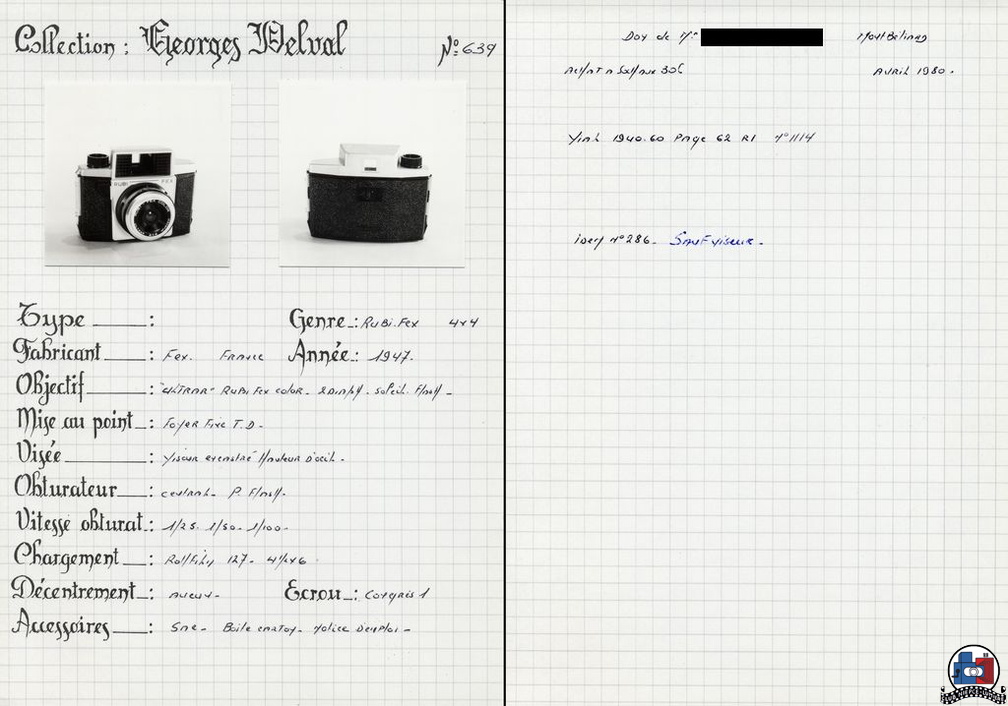 Collection : Georges Delval N° 639
RUBI FEX
Type : Genre : Rubi.Fex 4x4
Fabricant : Fex. France Année : 1947.
Objectif : Rubi Fex color.
Mise au point : Foyer Fixe T.D.
Visée : Viseur Hauteur D'oeil.
Obturateur : central. P. Flash.
Vitesse obturat : 1/25. 1/50. 1/100.
Chargement : RollFilm 127.
Décentrement : aucun. Ecrou : Congrès 1
Accessoires : Sac. Boite Notice D'emploi.
Don de Mr
Avril 1980.
1940.60 Page 62 R1
idem n° 286. Sauf viseur.